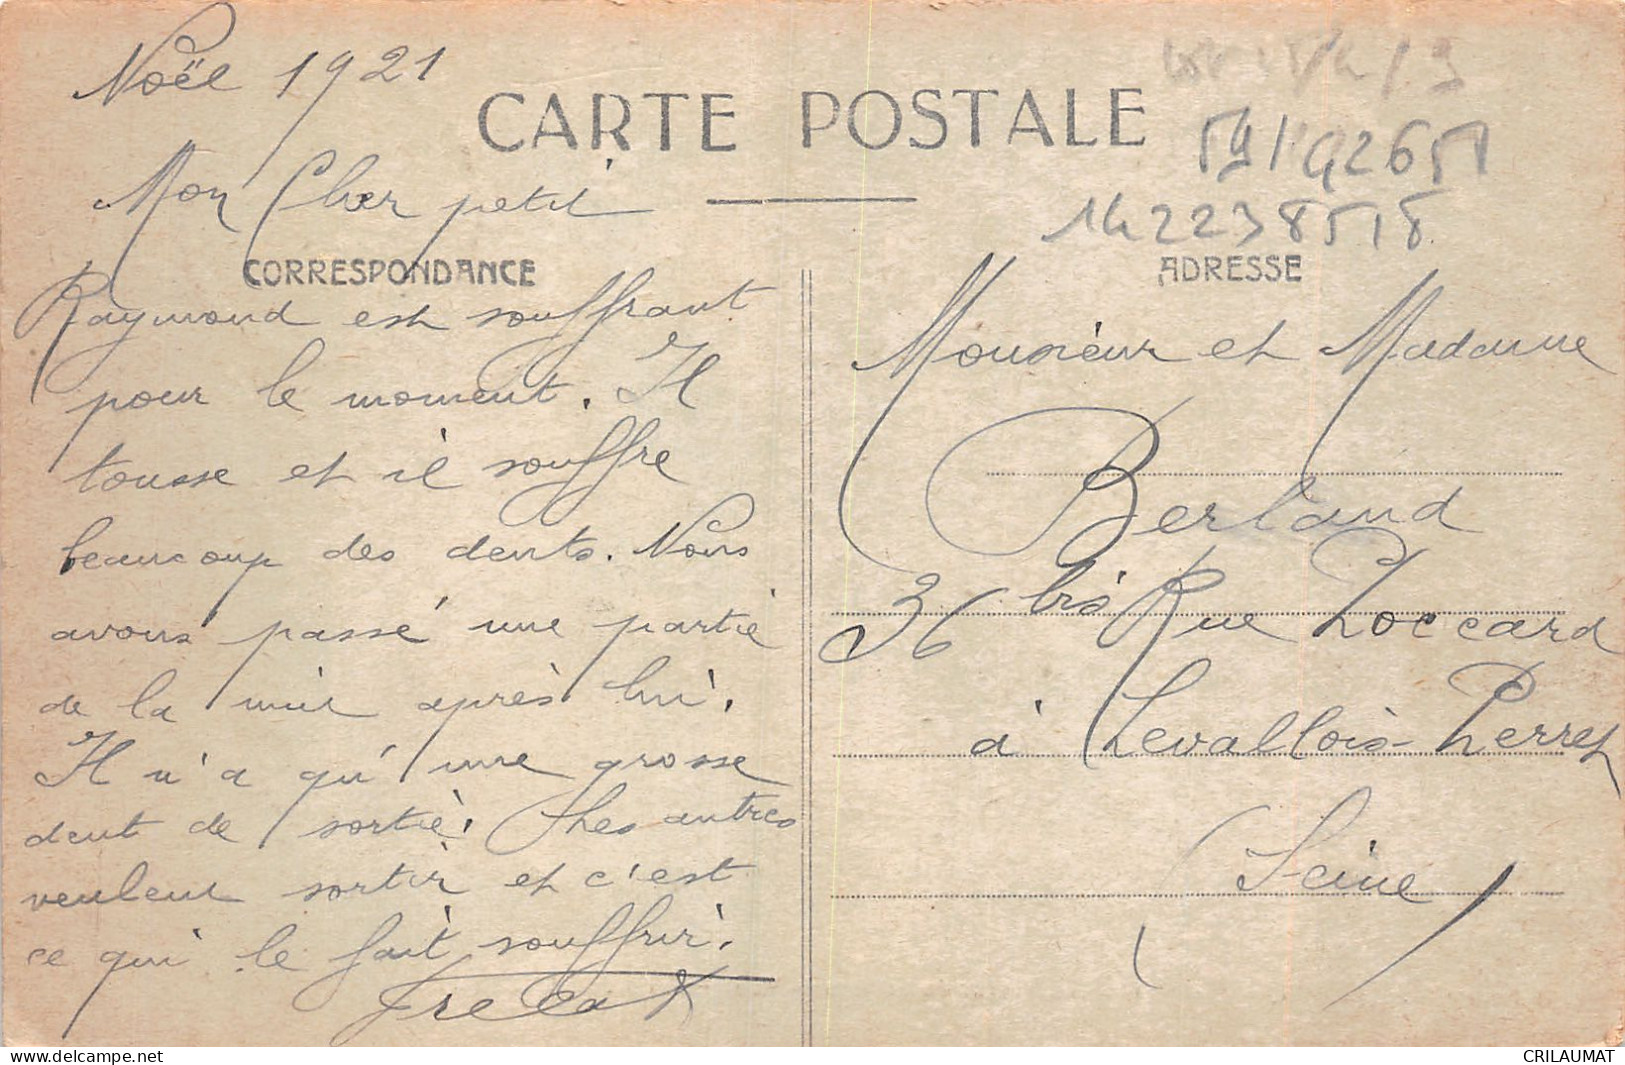 Noël 1921
CARTE POSTALE
59/42651
1422385518
Mon Cher petit
CORRESPONDANCE
Raymond est souffrant
pour le moment. Il
tousse et il souffre
beaucoup des dents. Nous
avons passé une partie
de la nuit après lui.
Il n'a qu'une grosse
dent de sortie. Les autres
veulent sortir et c'est
ce qui le fait souffrir.
ADRESSE
Monsieur et Madame
Berland
36 bis Rue Voccard
à Levallois-Perret
(Seine)
www.delcampe.net
CRILAUMAT